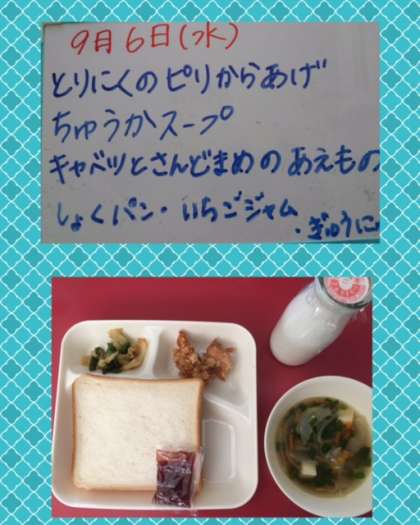 9月6日(水)
とりにくのピリからあげ
ちゅうかスープ
キャベツとさんどまめのあえもの
しょくパン・いちごジャム
・ぎゅうに